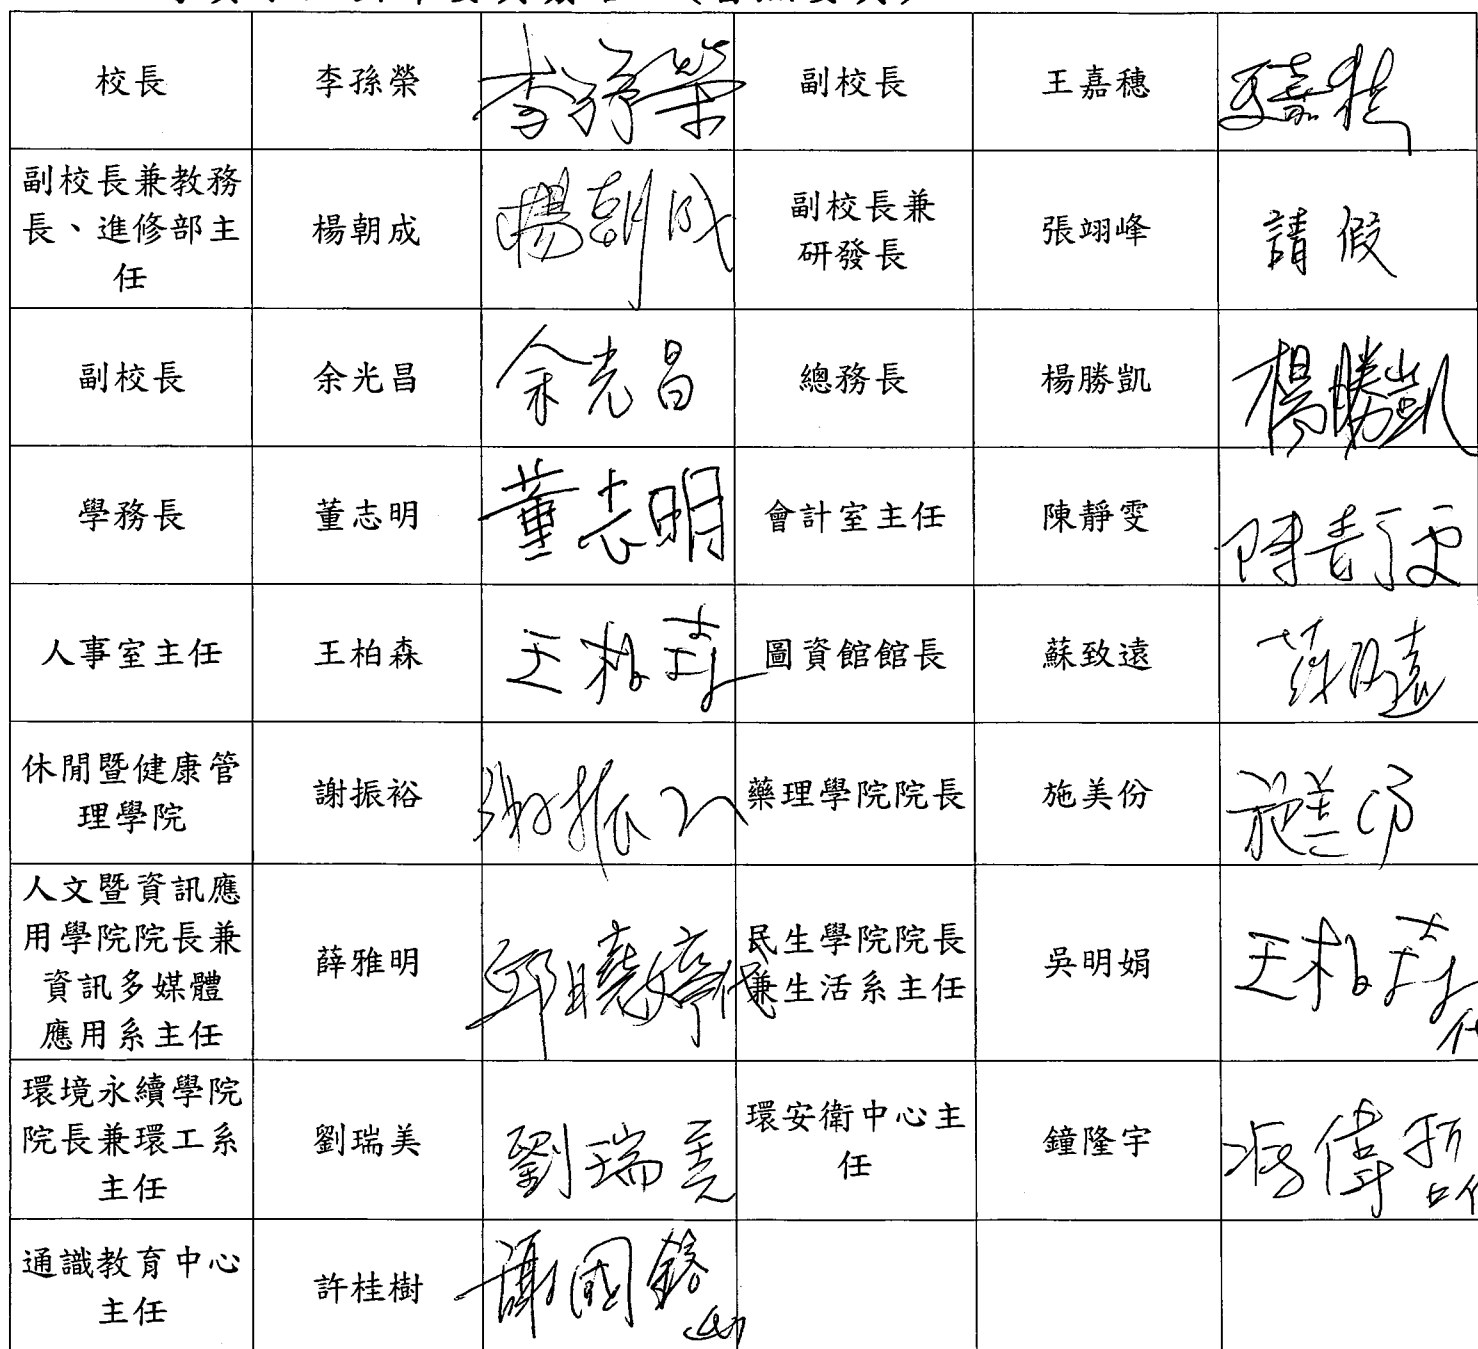 校長 李孫榮 李孫榮 副校長 王嘉穗 王嘉穗
副校長兼教務
長、進修部主
任
楊朝成 楊朝成
副校長兼
研發長
張翊峰 請假
副校長 余光昌 余光昌 總務長 楊勝凱 楊勝凱
學務長 董志明 董志明 會計室主任 陳靜雯 陳靜雯
人事室主任 王柏森 王柏森 圖資館館長 蘇致遠 蘇致遠
休閒暨健康管
理學院
謝振裕 謝振裕 藥理學院院長 施美份 施美份
人文暨資訊應
用學院院長兼
資訊多媒體
應用系主任
薛雅明 邱曉婷代
民生學院院長
兼生活系主任
吳明娟 王柏森
代
環境永續學院
院長兼環工系
主任
劉瑞美 劉瑞美
環安衛中心主
任
鐘隆宇
通識教育中心
主任
許桂樹